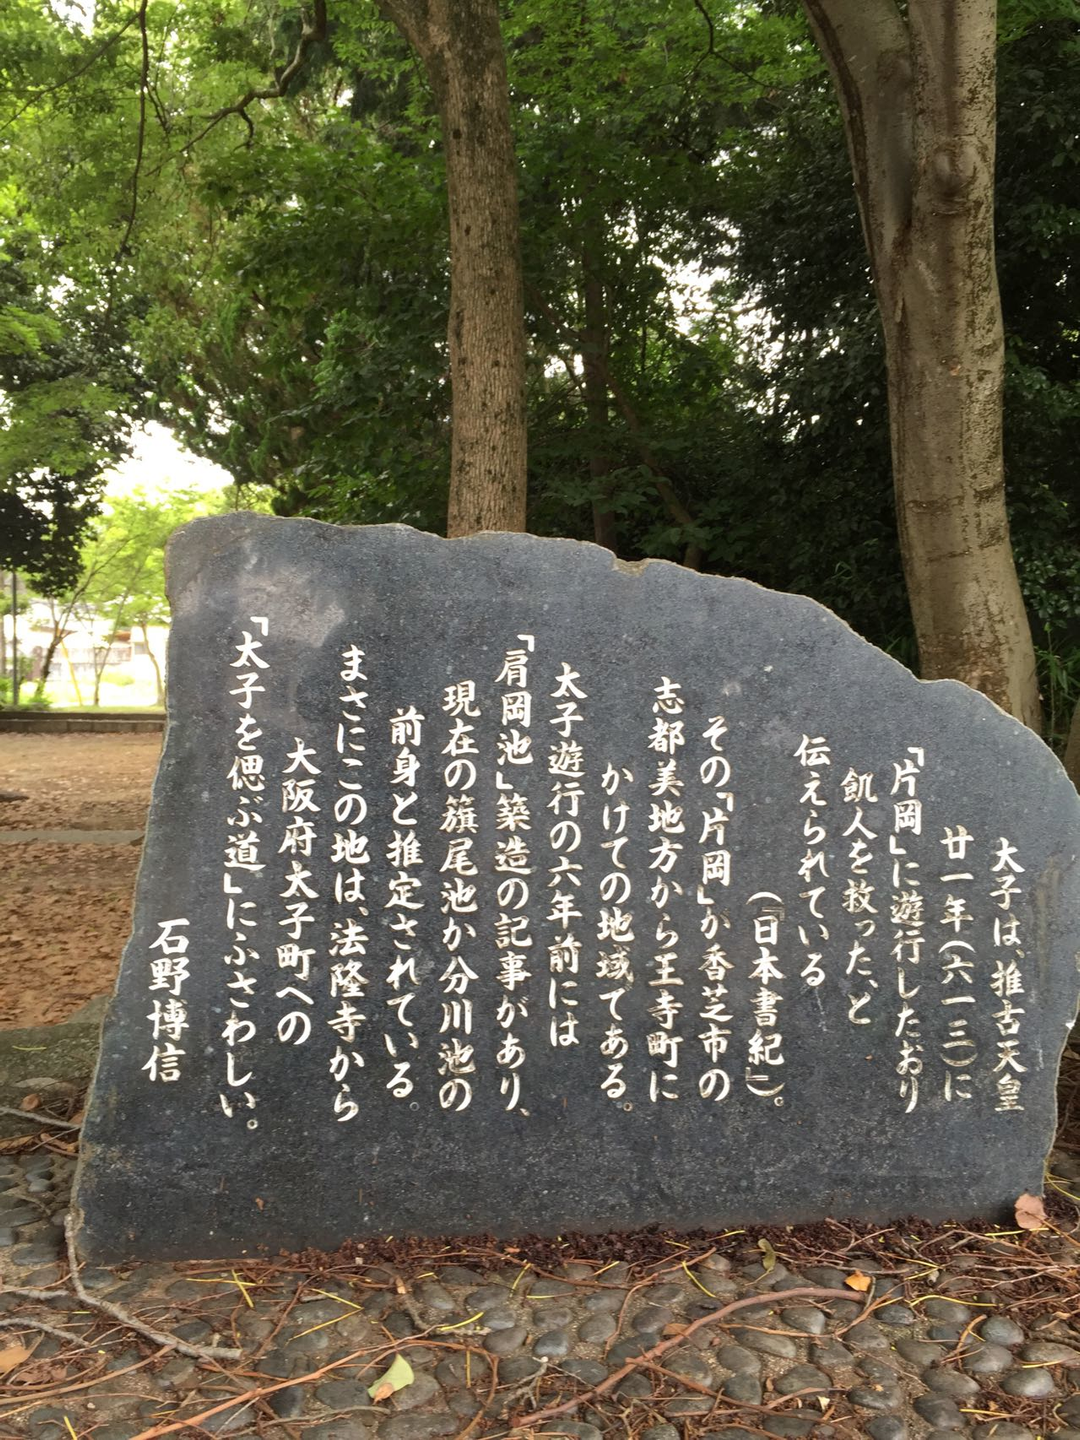 太子は、推古天皇
廿一年(六一三)に
「片岡」に遊行したおり
飢人を救った、と
伝えられている
(『日本書紀』)。
その「片岡」が香芝市の
志都美地方から王寺町に
かけての地域である。
太子遊行の六年前には
「肩岡池」築造の記事があり、
現在の籏尾池か分川池の
前身と推定されている。
まさにこの地は、法隆寺から
大阪府太子町への
「太子を偲ぶ道」にふさわしい。
石野博信